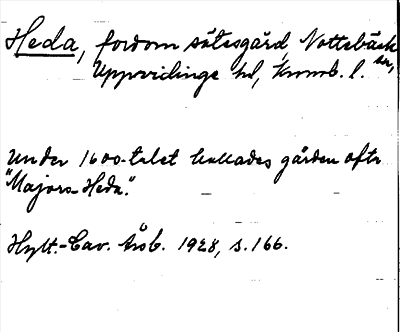 Heda, fordom sätesgård, Nottebäck
sn,
Uppvidinge hd, Kronob. l.
Under 1600-talet kallades gården ofta
"Majors-Heda".
Hylt.-Cav. årsb. 1928, s. 166.